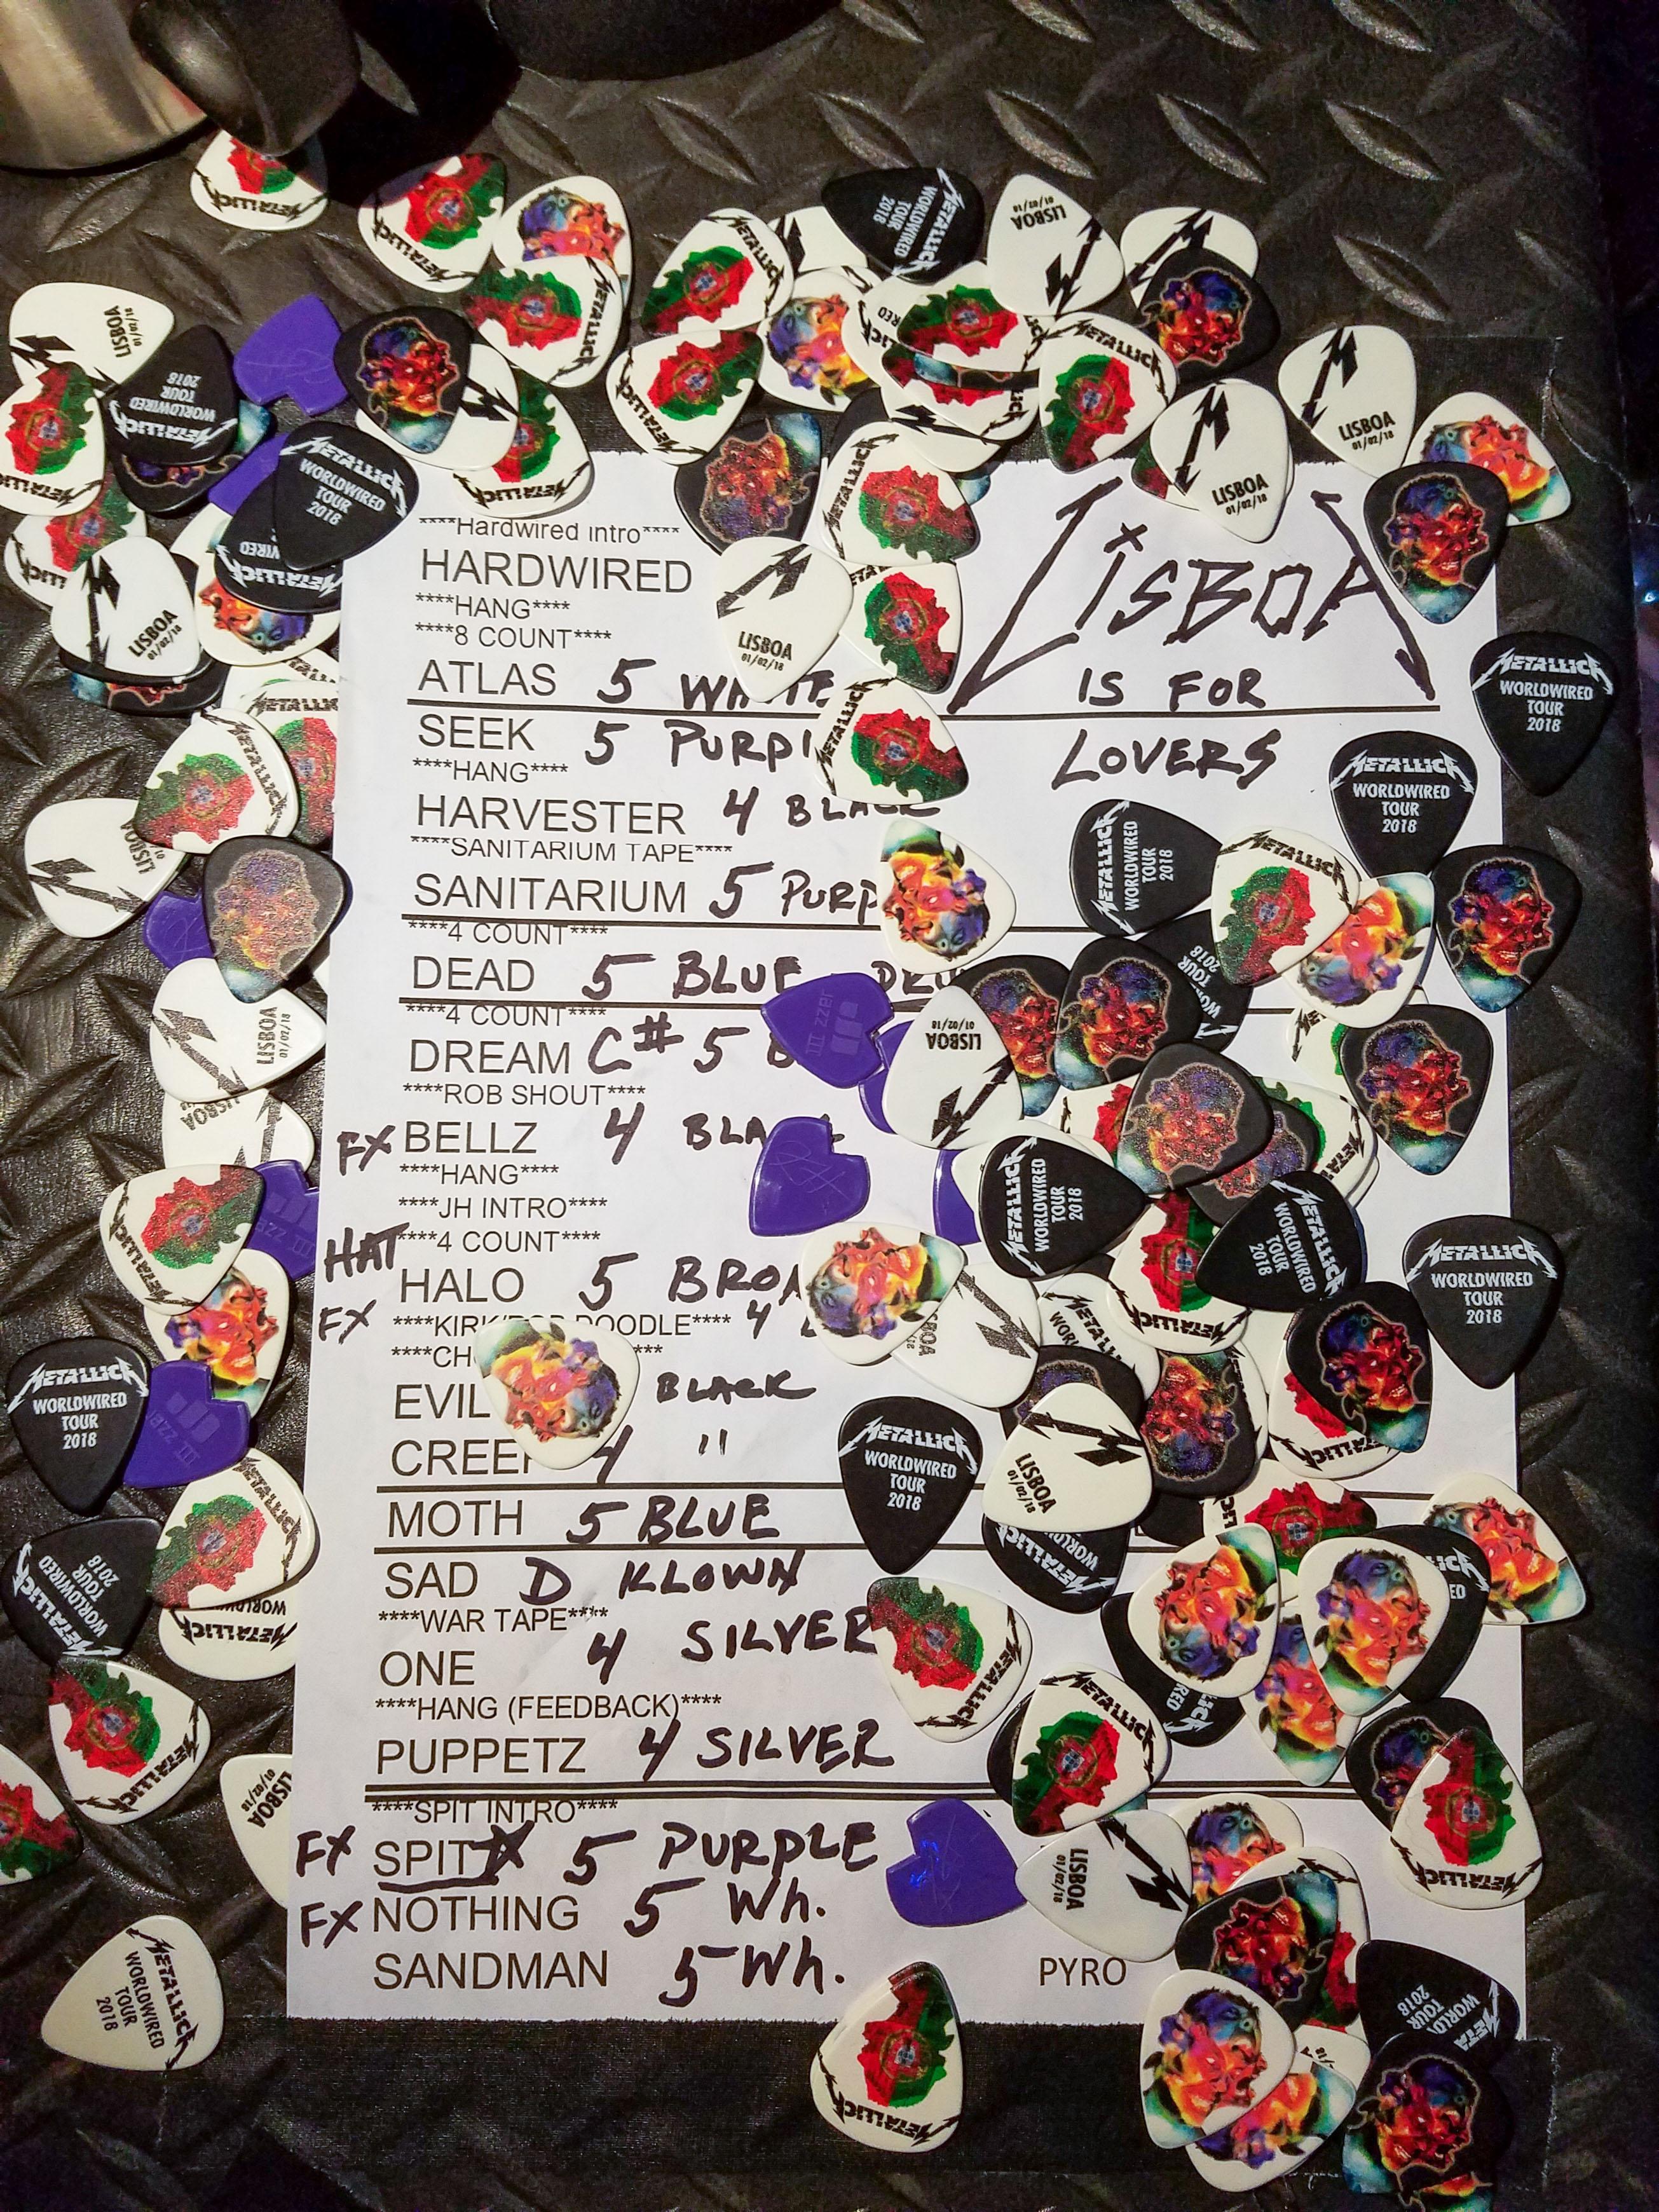 ****Hardwired intro****
HARDWIRED
****HANG****
****8 COUNT****
LiSBOA
IS FOR
LOVERS
ATLAS 5 WHITE
SEEK 5
****HANG****
HARVESTER 4 BLACK
****SANITARIUM TAPE****
SANITARIUM 5
****4 COUNT****
DEAD 5 BLUE
****4 COUNT****
DREAM C# 5
****ROB SHOUT****
FX BELLZ 4
****HANG****
****JH INTRO****
HAT ****4 COUNT****
HALO 5
FX ****KIRK/ROB DOODLE**** 4
EVIL BLACK
CREEP 4 "
MOTH 5 BLUE
SAD D KLOWN
****WAR TAPE****
ONE 4 SILVER
****HANG (FEEDBACK)****
PUPPETZ 4 SILVER
****SPIT INTRO****
FX SPIT 5 PURPLE
FX NOTHING 5 Wh.
SANDMAN 5 Wh.
PYRO
METALLICA
WORLDWIRED
TOUR
2018
LISBOA
01/02/18
JAZZ III